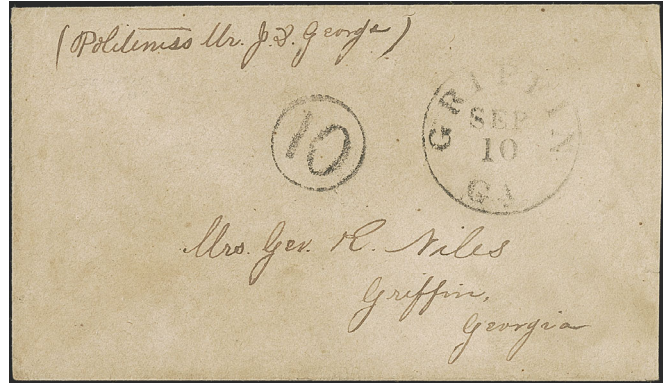 (Politeness Mr. J. S. George)
10
GRIFFIN
SEP
10
GA
Mrs. Geo. R. Niles
Griffin,
Georgia